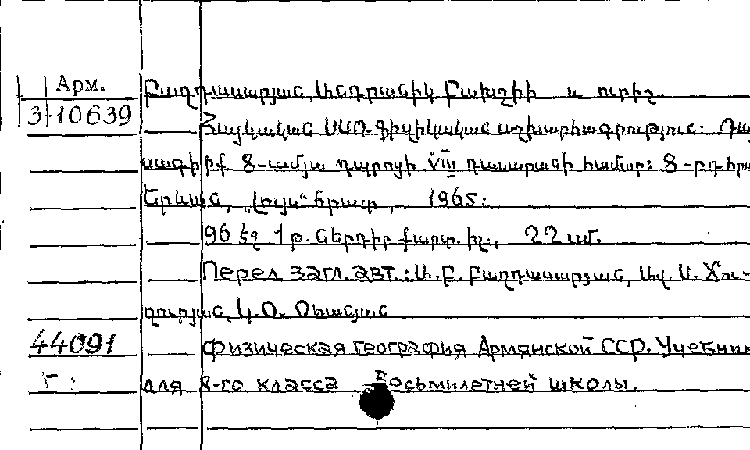 Арм.
3-10639
Բաղդասարյան, Անդրանիկ Բախշիի և ուրիշ
Հայկական ՍՍՌ ֆիզիկական աշխարհագրություն: Դա
սագիրք 8-ամյա դպրոցի VIII դասարանի համար: 8-րդ հր
Երևան, „Լույս" հրատ., 1965:
96 էջ 1 թ. ներդիր քարտ. իլ., 22 սմ.
Перел загл. авт.: Ա. Բ. Բաղդասարյան, Ավ. Ա.
Կ. Օ. Օհանյան
44091 Физическая география Армянской ССР. Учебник
Г: для 8-го класса Восьмилетней школы.